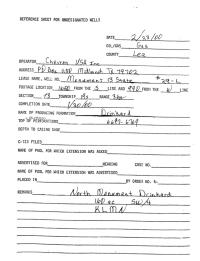 REFERENCE SHEET FOR UNDESIGNATED WELLS
DATE 2/23/00
OIL/GAS Gas
COUNTY Lea
OPERATOR Chevron USA Inc
ADDRESS P O Box 1150 Midland Tx 79702
LEASE NAME, WELL NO. Monument 13 State #29-L
FOOTAGE LOCATION FROM THE S LINE AND 990 FROM THE W LINE
SECTION 13 TOWNSHIP 19s RANGE 36e
COMPLETION DATE 1/20/00
NAME OF PRODUCING FORMATION Drinkard
TOP OF PERFORATIONS
DEPTH TO CASING SHOE
C-123 FILED
NAME OF POOL FOR WHICH EXTENSION WAS ASKED
ADVERTISED FOR HEARING CASE NO.
NAME OF POOL FOR WHICH EXTENSION WAS ADVERTISED
PLACED IN BY ORDER NO. R-
REMARKS North Monument Drinkard
160 ac SW/4
K L M N